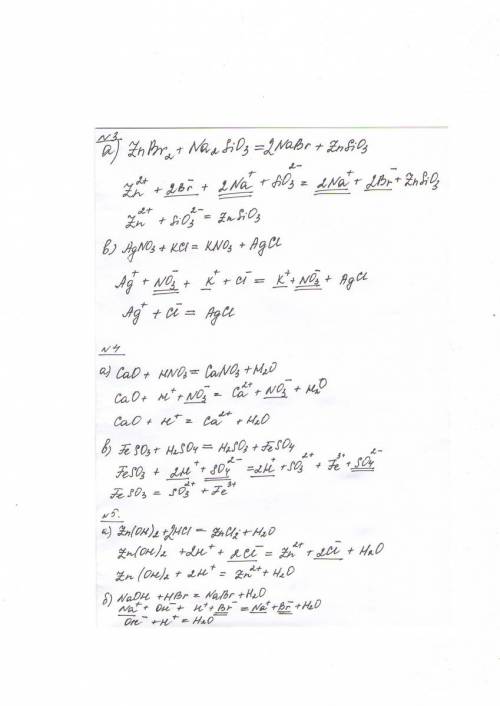 №3
а) ZnBr₂ + Na₂SiO₃ = 2NaBr + ZnSiO₃
Zn²⁺ + 2Br⁻ + 2Na⁺ + SiO₃²⁻ = 2Na⁺ + 2Br⁻ + ZnSiO₃
Zn²⁺ + SiO₃²⁻ = ZnSiO₃
в) AgNO₃ + KCl = KNO₃ + AgCl
Ag⁺ + NO₃⁻ + K⁺ + Cl⁻ = K⁺ + NO₃⁻ + AgCl
Ag⁺ + Cl⁻ = AgCl
№4
а) CaO + HNO₃ = CaNO₃ + H₂O
CaO + H⁺ + NO₃⁻ = Ca²⁺ + NO₃⁻ + H₂O
CaO + H⁺ = Ca²⁺ + H₂O
в) FeSO₃ + H₂SO₄ = H₂SO₃ + FeSO₄
FeSO₃ + 2H⁺ + SO₄²⁻ = 2H⁺ + SO₃²⁺ + Fe³⁺ + SO₄²⁻
FeSO₃ = SO₃²⁺ + Fe³⁺
№5.
а) Zn(OH)₂ + 2HCl = ZnCl₂ + H₂O
Zn(OH)₂ + 2H⁺ + 2Cl⁻ = Zn²⁺ + 2Cl⁻ + H₂O
Zn(OH)₂ + 2H⁺ = Zn²⁺ + H₂O
б) NaOH + HBr = NaBr + H₂O
Na⁺ + OH⁻ + H⁺ + Br⁻ = Na⁺ + Br⁻ + H₂O
OH⁻ + H⁺ = H₂O